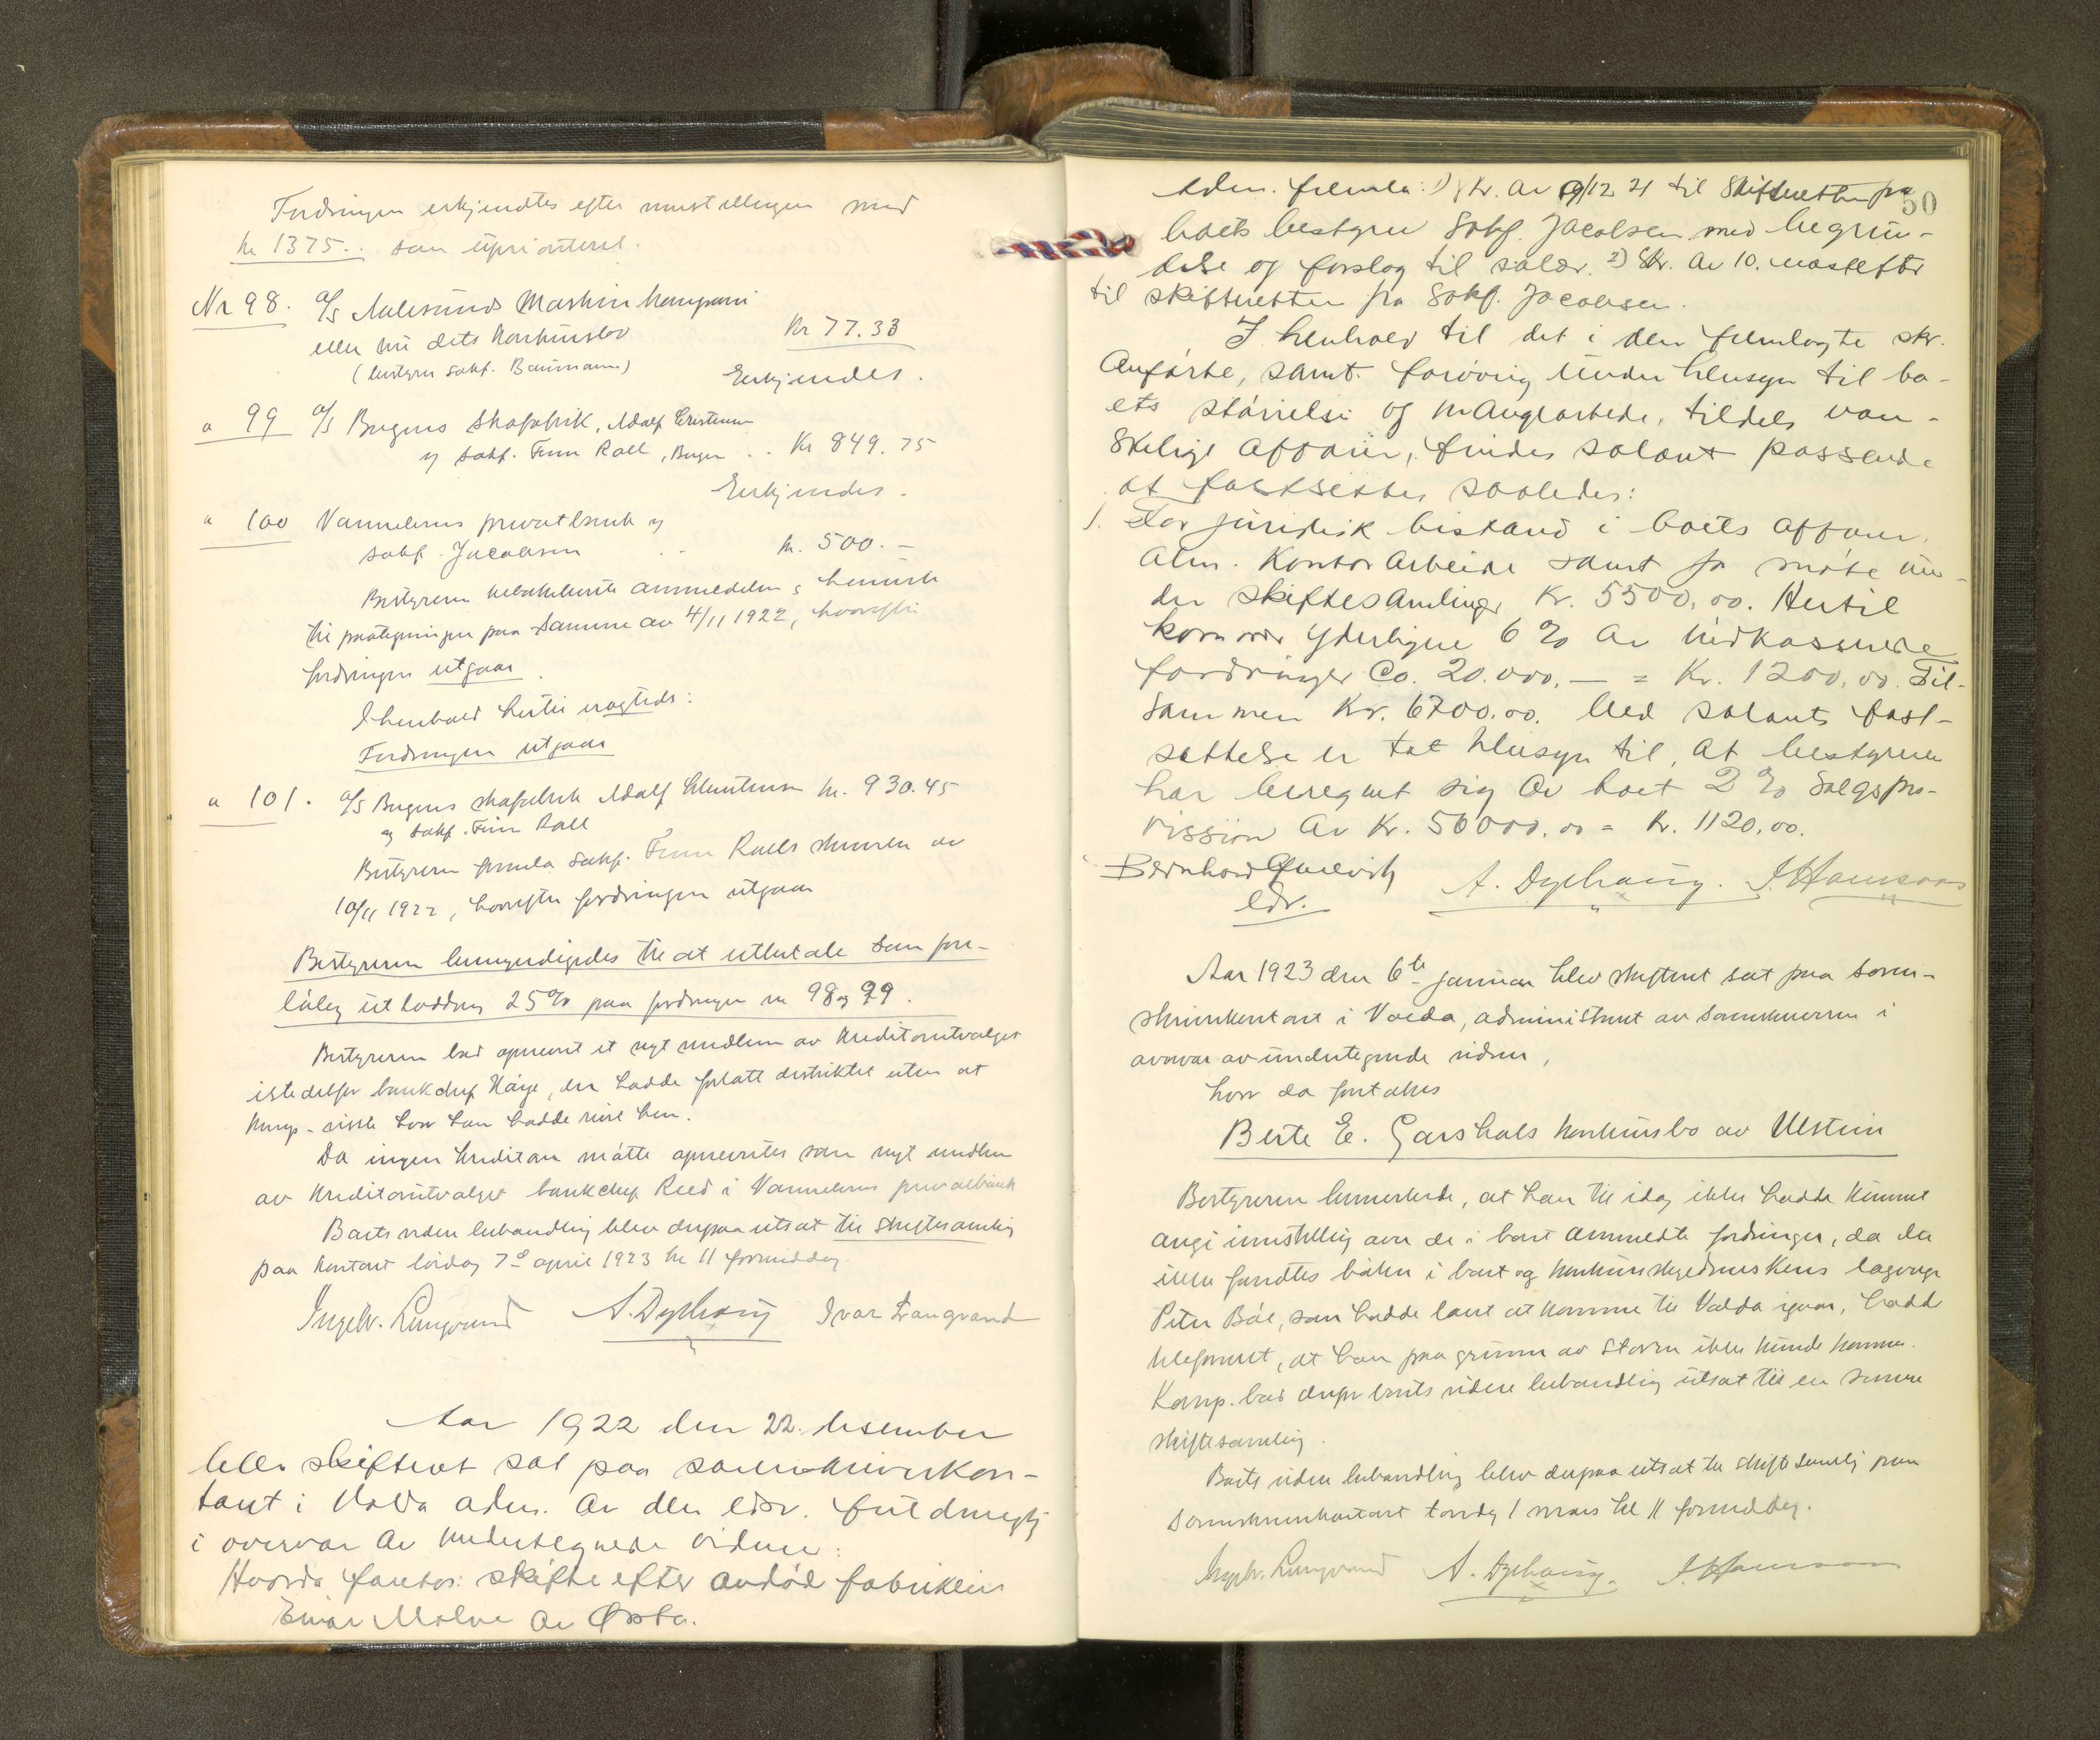 Fordringen erkjendtes efter innstillingen med
kr 1375.. som uprioritert.
Nr 98. a/s Aalesunds Maskinkompani
eller nu dets konkursbo Kr 77.33
(bestyrer sakf. Baumann)
Erkjendes.
" 99 a/s Bergens Skofabrik, Adolf Christensen
v/ sakf. Finn Rall, Bergen .. Kr 849.75
Erkjendes.
" 100 Vannelvens privatbank v/
sakf. Jacobsen .. kr. 500.-
Bestyreren tilbakekaldte anmeldelsen; henviste
til paategningen paa samme av 4/11 1922, hvorefter
fordringen utgaar.
I henhold hertil vragtedes:
Fordringen utgaar
" 101. a/s Bergens skofabrik Adolf Christensen kr. 930.45
v/ sakf. Finn Rall
Bestyreren fremla sakf. Finn Ralls skrivelse av
10/11 1922, hvorefter fordringen utgaar
Bestyreren bemyndigedes til at utbetale som fore-
løbig utlodding 25% paa fordringer nr 98 og 99.
Bestyreren bad opnevnt et nyt medlem av kreditorutvalget
istedetfor bankchef Høye, der hadde forlatt distriktet uten at
komp. visste hvor han hadde reist hen.
Da ingen kreditor møtte opnevntes som nyt medlem
av kreditorutvalget bankchef Reed i Vannelvens privatbank
Boets videre behandling blev derpaa utsat til skiftesamling
paa kontoret lørdag 7de april 1923 kl 11 formiddag.
Ingolv. Lungrund A. Dyshavig Ivar Drangsand
Aar 1922 den 22. desember
blev skifteret sat paa sorenskriverkon-
toret i Volda adm. av den edsv. fuldmegtig
i overvær av undertegnede vidner:
Hvorda foretos: skifte efter avdød fabrikeier
Einar Melve av Ørsta.
50
Adm. fremla: 1) skr. av 19/12 21 til Skifteretten fra
boets bestyrer Sakf. Jacobsen med begrun-
delse og forslag til salær. 2) Skr. av 10.
til skifteretten fra Sakf. Jacobsen.
I henhold til det i den fremlagte skr.
anførte, samt forøvrig under hensyn til bo-
ets størrelse og mangeartede, tildels van-
skelige affærer, findes salæret passende
at fastsettes saaledes:
1. For juridisk bistand i boets affærer,
alm. kontorarbeide samt for møte un-
der skiftesamlinger Kr. 5500,00. Hertil
kommer yderligere 6% av indkasserte
fordringer ca. 20.000,- = Kr. 1200,00. Til-
sammen Kr. 6700.00. Ved salærets fast-
settelse er tat hensyn til, at bestyreren
har beregnet sig av boet 2% salgspro-
vission av Kr. 56000,00 = Kr. 1120,00.
Bernhard A. Dyshavig. J. Hamsaas
edv.
Aar 1923 den 6te januar blev skifteret sat paa soren-
skriverkontoret i Volda, administrert av sorenskriveren i
overvær av undertegnede vidner,
hvor da foretokes
Berte E. Garshols konkursbo av Ulstein
Bestyreren bemerkede, at han til idag ikke hadde kunnet
avgi innstilling over de i boet anmeldte fordringer, da der
ikke fandtes bøker i boet og konkursskyldnerskens lagverge
Peter Bøe, som hadde lovet at komme til Volda igaar, hadde
telefonert, at han paa grunn av storm ikke kunde komme.
Komp. bad derfor boets videre behandling utsat til en senere
skiftesamling.
Boets videre behandling blev derpaa utsat til skiftesamling paa
sorenskriverkontoret torsdag 1 mars kl 11 formiddag.
Ingolv. Lungrund A. Dyshavig. J. Hamsaas